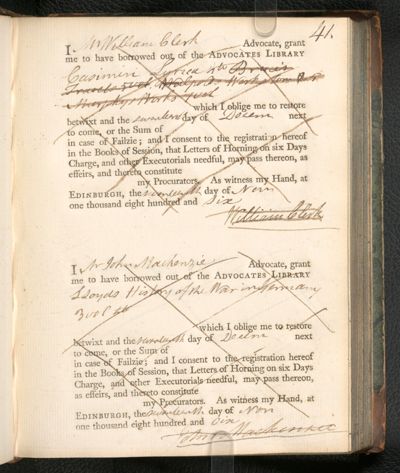 41.
I, Mr William Clerk Advocate, grant
me to have borrowed out of the ADVOCATES LIBRARY
Casimiri Lyrica 4to Bruce's
Travels 5 vol
Murphy's Works 7 vol
which I oblige me to restore
betwixt and the seventeenth day of Decem next
to come, or the Sum of
in case of Failzie; and I consent to the registration hereof
in the Books of Session, that Letters of Horning on six Days
Charge, and other Executorials needful, may pass thereon, as
effeirs, and thereto constitute
my Procurators. As witness my Hand, at
EDINBURGH, the seventeenth day of Nov
one thousand eight hundred and Six
William Clerk
I, Mr John Mackenzie Advocate, grant
me to have borrowed out of the ADVOCATES LIBRARY
Lloyds History of the War in Germany
3 vol 4to
which I oblige me to restore
betwixt and the seventeenth day of Decem next
to come, or the Sum of
in case of Failzie; and I consent to the registration hereof
in the Books of Session, that Letters of Horning on six Days
Charge, and other Executorials needful, may pass thereon,
as effeirs, and thereto constitute
my Procurators. As witness my Hand, at
EDINBURGH, the seventeenth day of Nov
one thousand eight hundred and Six
John Mackenzie